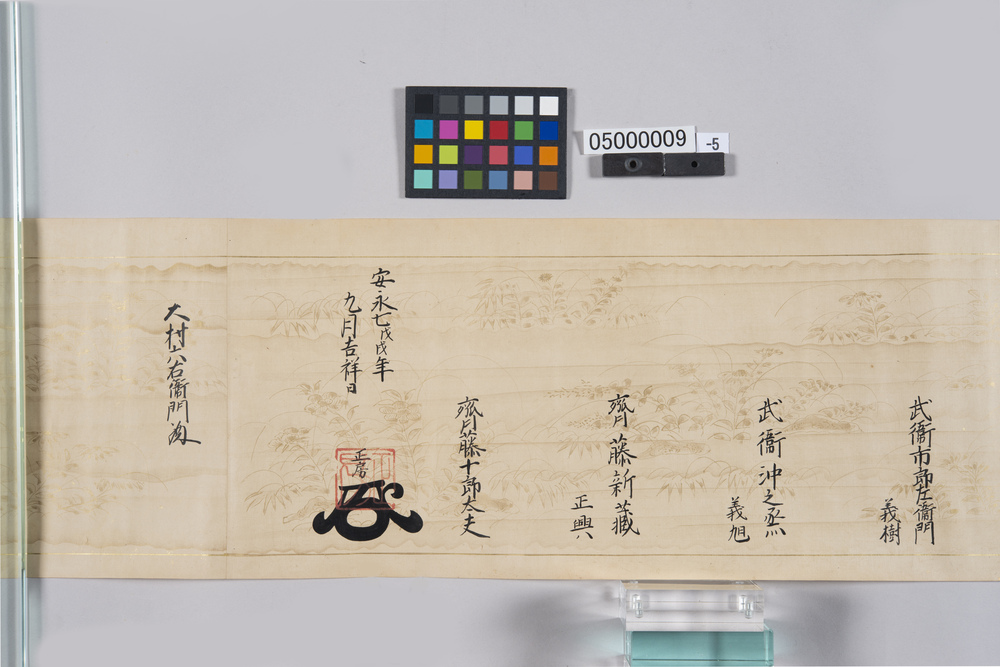 05000009
-5
武衞市郎左衞門
義樹
武衞沖之烝
義旭
齊藤新藏
正興
齊藤十郎太夫
正房
安永七戊戌年
九月吉祥日
大村六右衞門